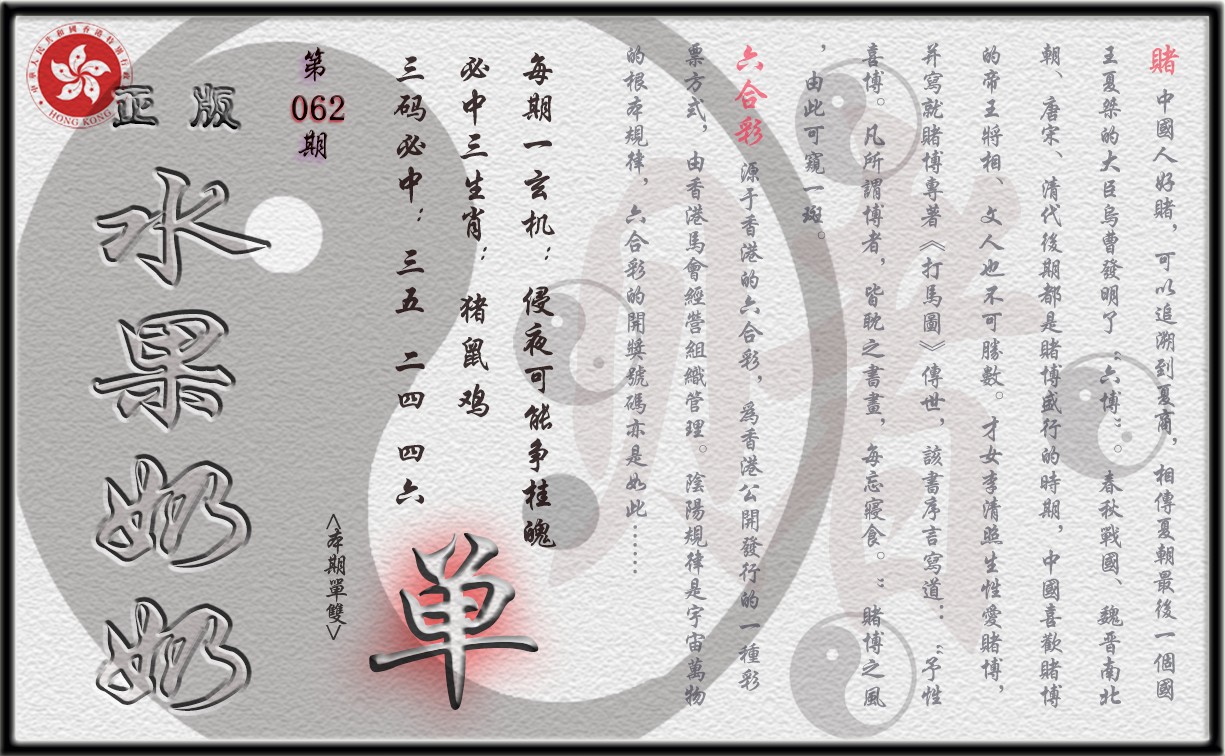 賭 中國人好賭，可以追溯到夏商，相傳夏朝最後一個國
王夏桀的大臣烏曹發明了“六博”。春秋戰國、魏晋南北
朝、唐宋、清代後期都是賭博盛行的時期，中國喜歡賭博
的帝王將相、文人也不可勝數。才女李清照生性愛賭博，
并寫就賭博專著《打馬圖》傳世，該書序言寫道：“予性
喜博。凡所謂博者，皆耽之書畫，每忘寢食。”賭博之風
，由此可窺一斑。
六合彩 源于香港的六合彩，爲香港公開發行的一種彩
票方式，由香港馬會經營組織管理。陰陽規律是宇宙萬物
的根本規律，六合彩的開獎號碼亦是如此……
每期一玄机：侵夜可能争桂魄
必中三生肖：猪鼠鸡
三码必中：三五 二四 四六
单
<本期單雙>
第
062
期
正版
水果奶奶
中華人民共和國香港特別行政區
HONG KONG